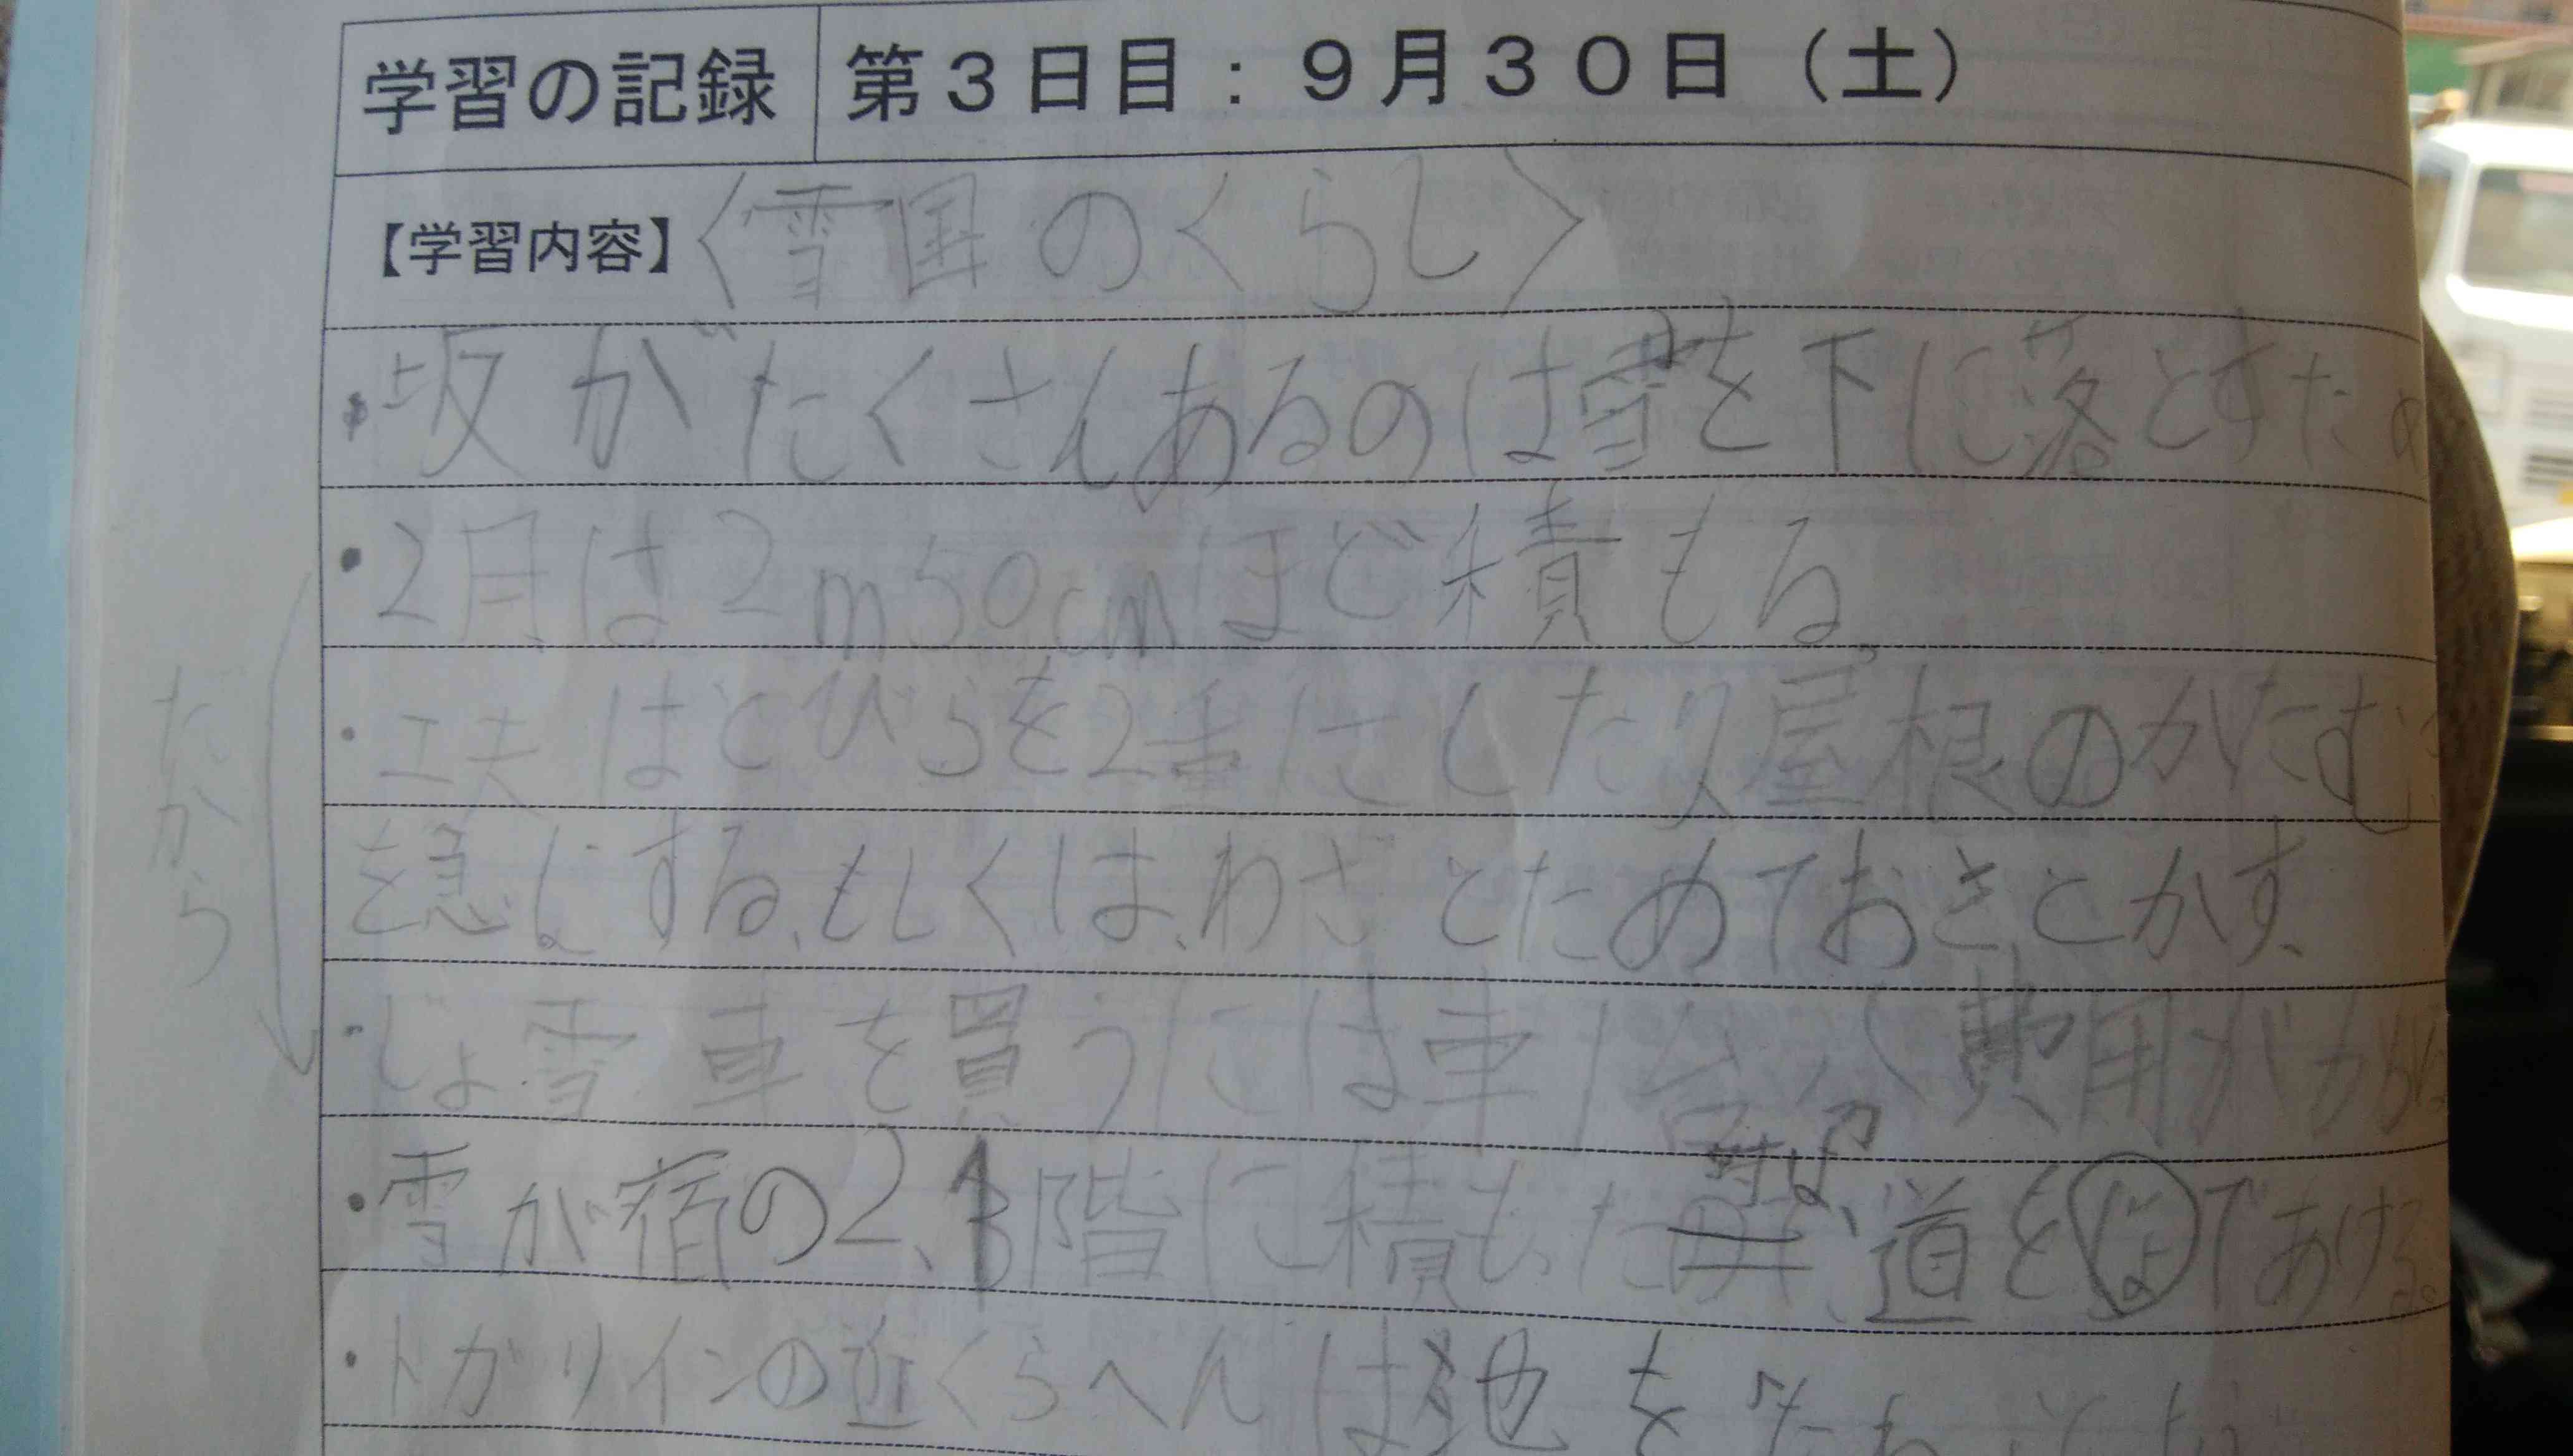 学習の記録 第3日目:9月30日(土)
【学習内容】〈雪国のくらし〉
・坂がたくさんあるのは雪を下に落とすため
・2月は2m50cmほど積もる。
・工夫はとびらを2重にしたり屋根のかたむ
を急にする、もしくは、わざとためておきとかす、
だから
・じょ雪車を買うには車1台分費用がかかる
・雪が宿の2、階に積もった時は、道をじょであける。
・トガリインの近くらへんは池を